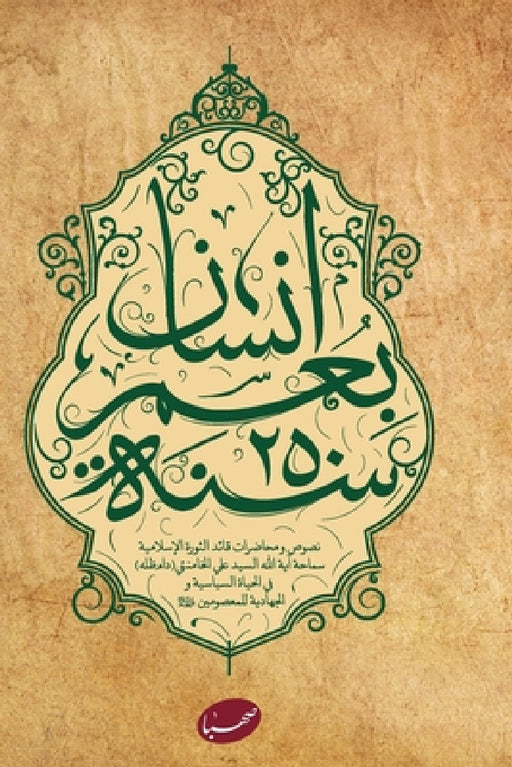 انسان
بعمر
٢٥٠ سنة
نصوص ومحاضرات قائد الثورة الإسلامية
سماحة آية الله السيد علي الخامنئي (دام ظله)
في الحياة السياسية و
الجهادية للمعصومين
صهبا